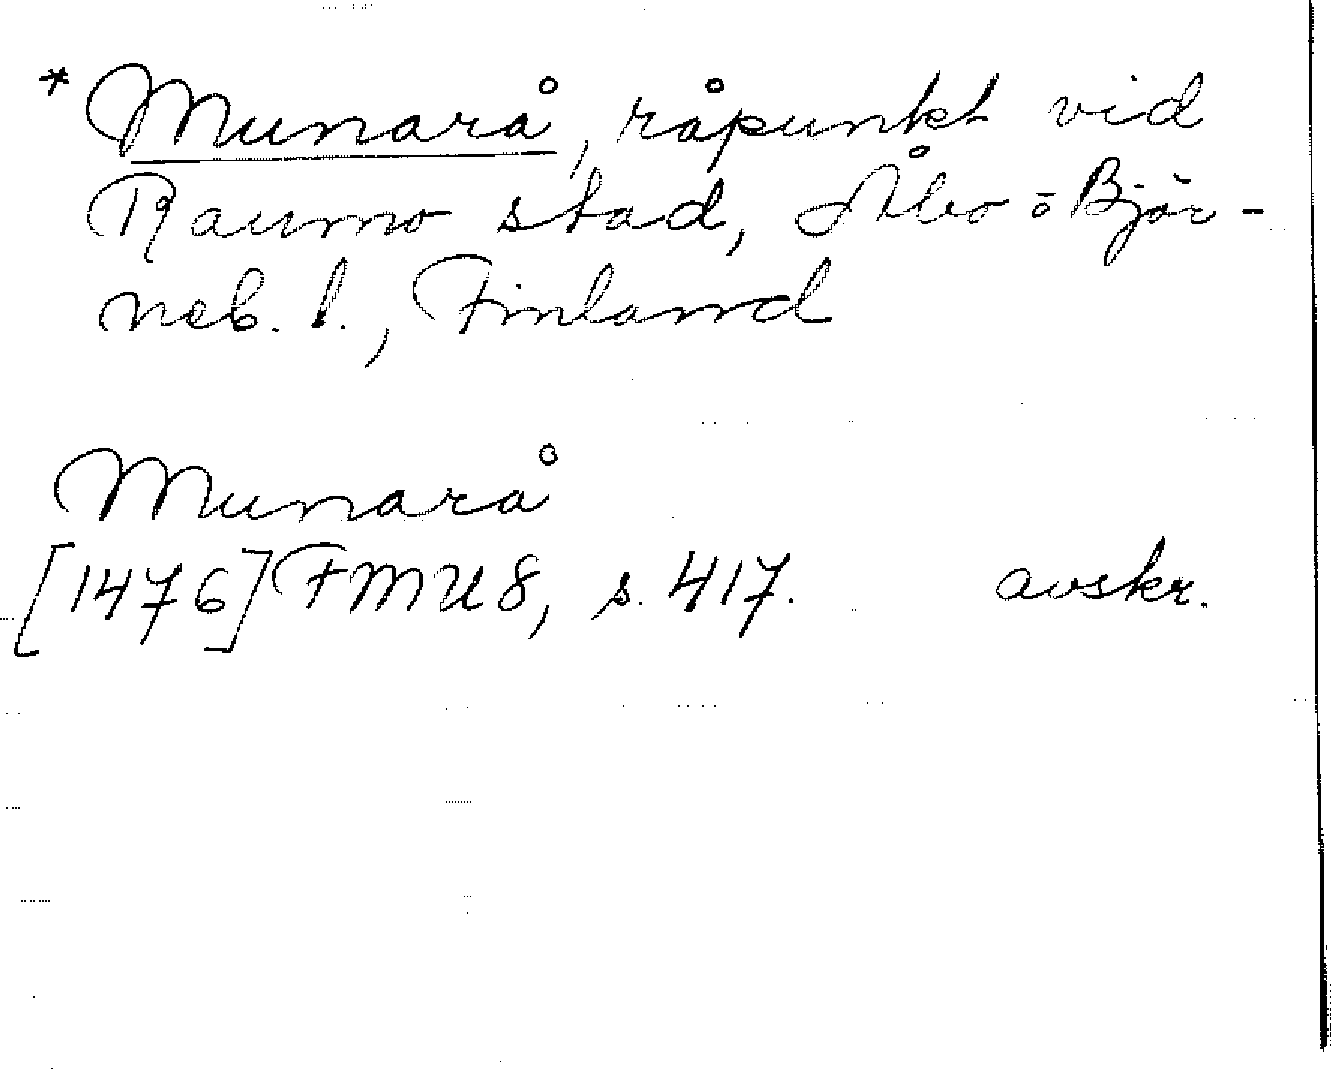 * Munarå, råpunkt vid
Raumo stad, Åbo o Björ-
neb. l., Finland
Munarå
[1476] FMU 8, s. 417. avskr.